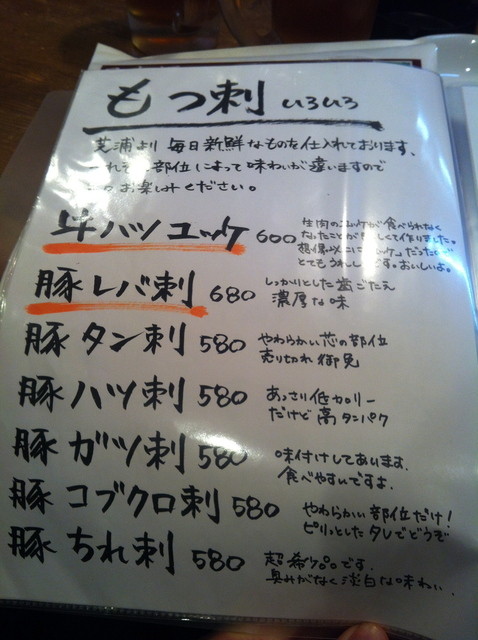 もつ刺 いろいろ
芝浦より 毎日新鮮なものを仕入れております。
部位によって味わいが違いますので
お楽しみください。
牛ハツユッケ 600
生肉のユッケが食べられなく
なったことが しくて作りました。
想像以上に
とてもうれしい です。おいしいよ。
豚レバ刺 680
しっかりとした歯ごたえ
濃厚な味
豚タン刺 580
やわらかい芯の部位
売り切れ御免
豚ハツ刺 580
あっさり低カロリー
だけど高タンパク
豚ガツ刺 580
味付けしてあります。
食べやすいですよ。
豚コブクロ刺 580
やわらかい部位だけ!
ピリッとしたタレでどうぞ
豚ちれ刺 580
超希少です。
臭みがなく淡白な味わい。